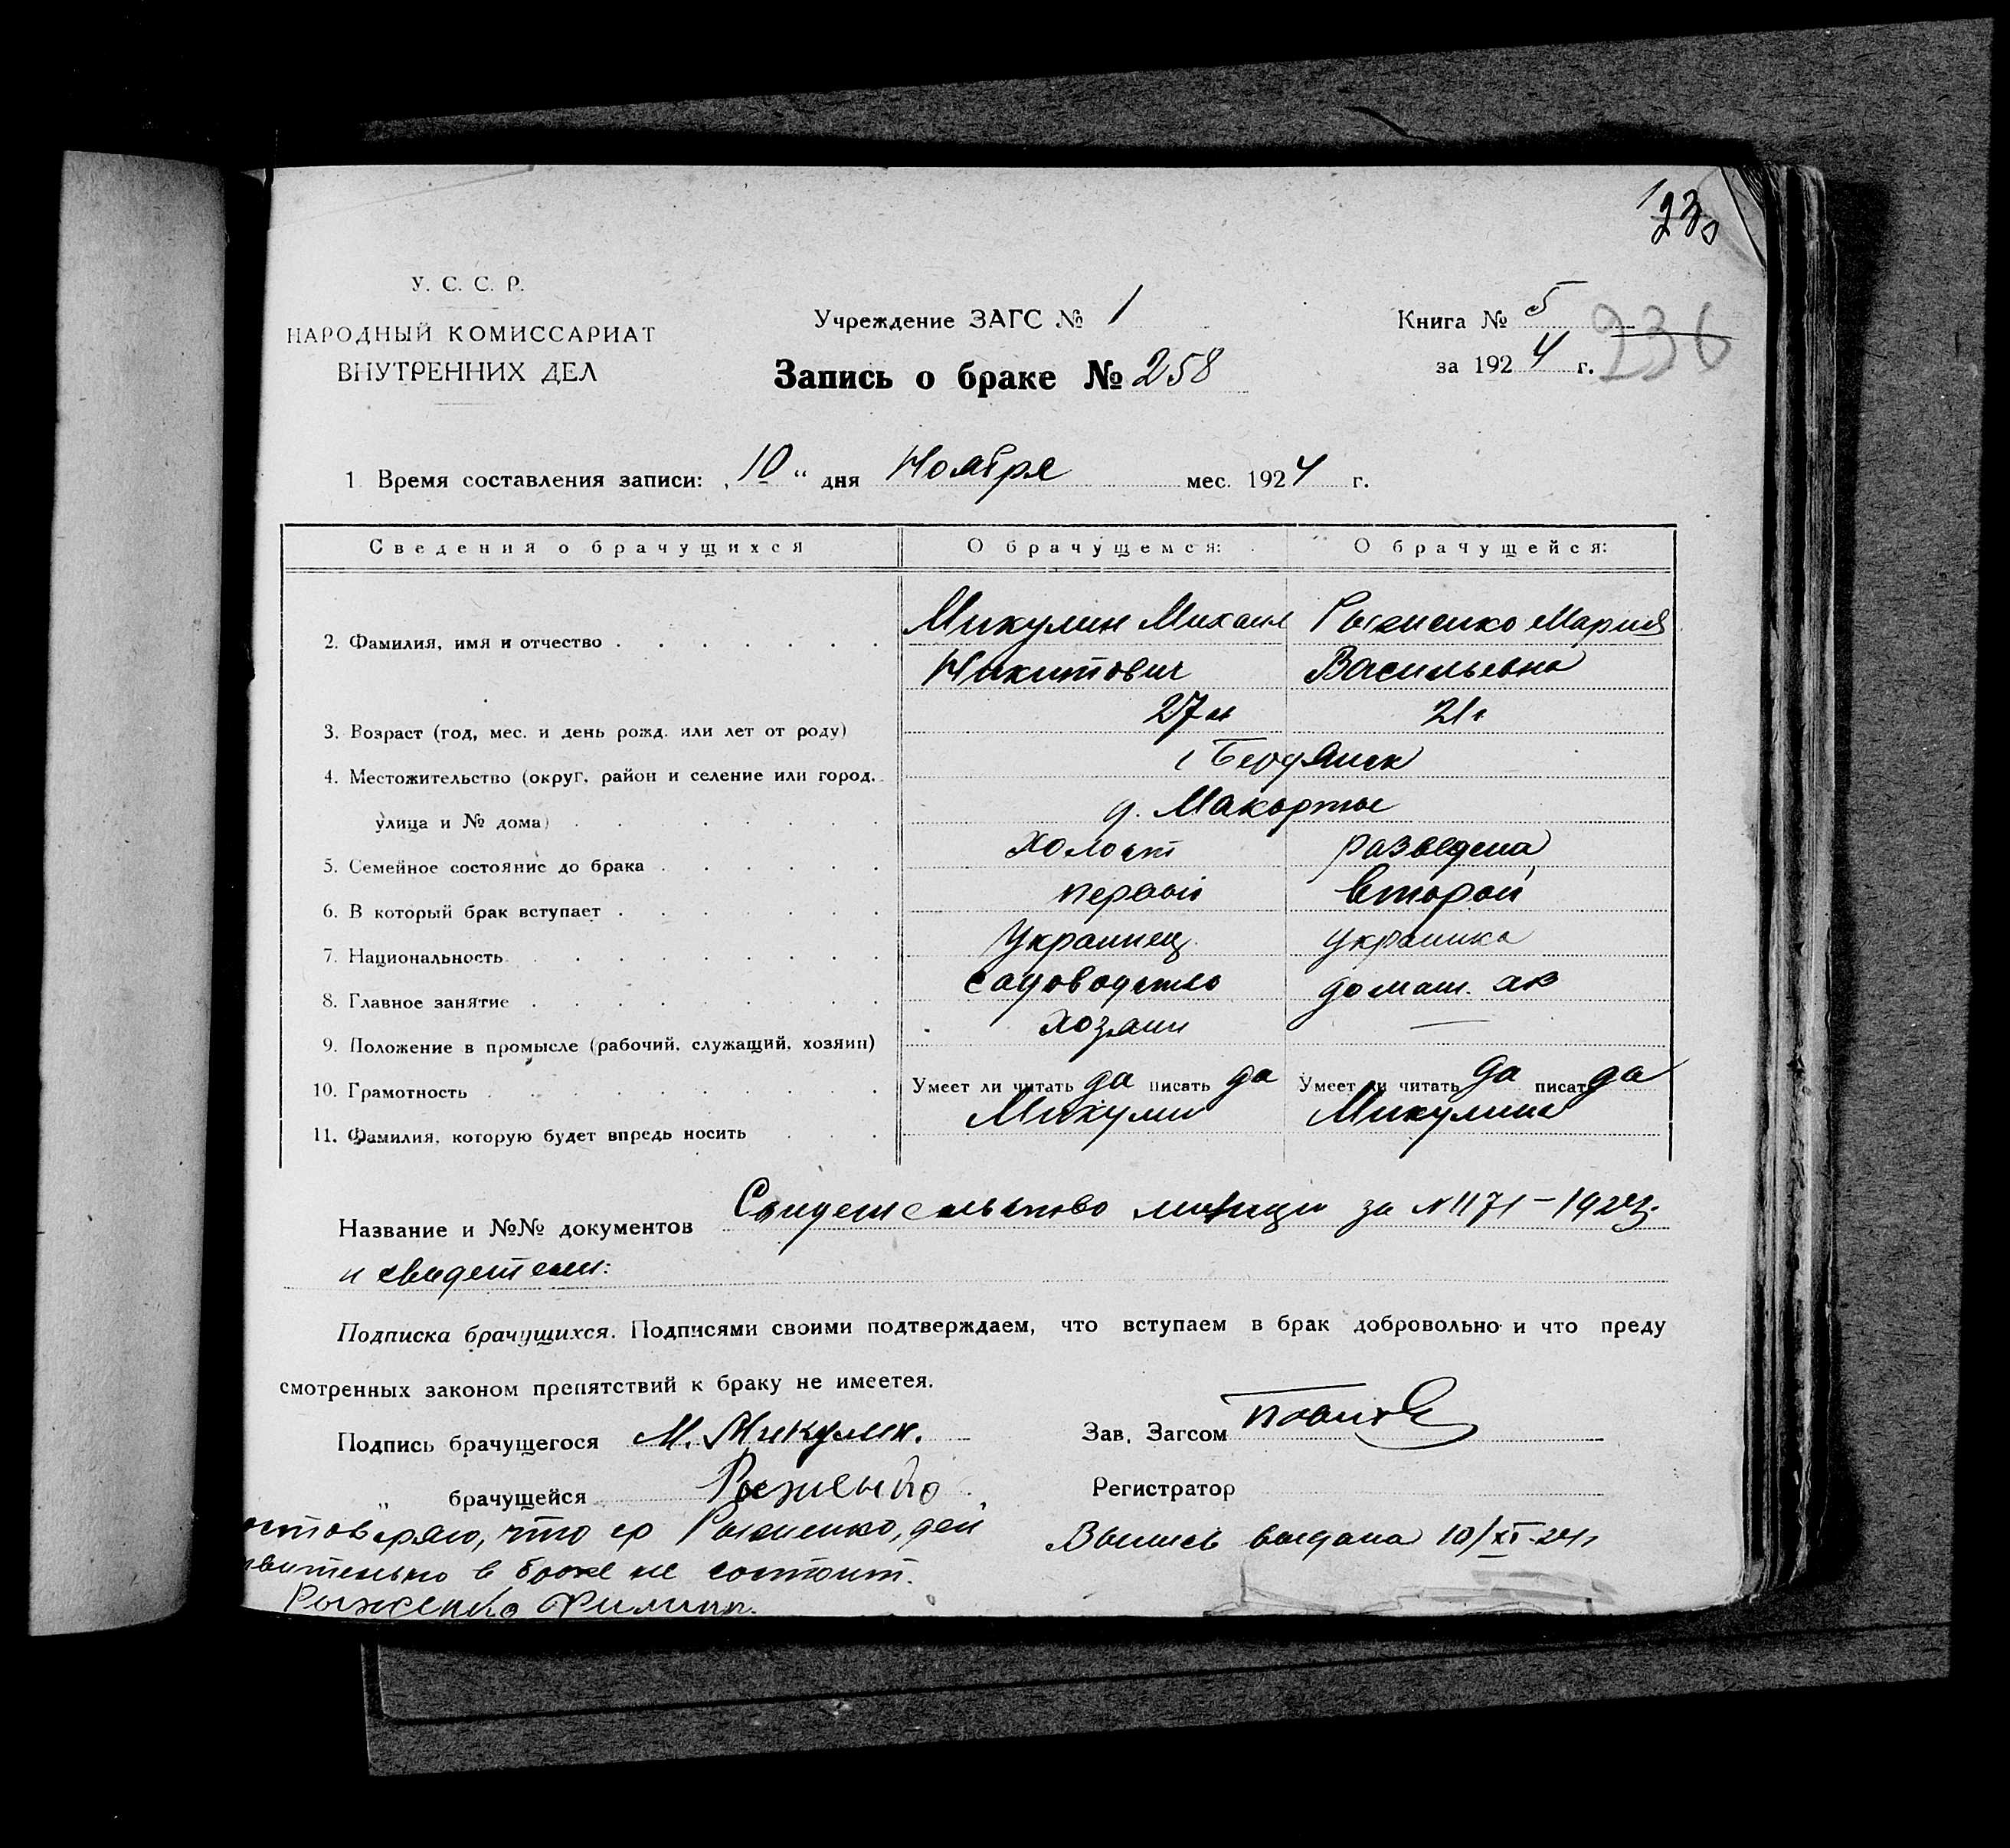 У. С. С. Р.
НАРОДНЫЙ КОМИССАРИАТ
ВНУТРЕННИХ ДЕЛ
Учреждение ЗАГС № 1
Запись о браке № 258
Книга № 5
за 1924 г.
236
1 Время составления записи: „10“ дня Ноября мес. 1924 г.
Сведения о брачущихся О брачущемся: О брачущейся:
2. Фамилия, имя и отчество Микулин Михаил Рыженко Мария
Никитович Васильевна
3. Возраст (год, мес. и день рожд. или лет от роду) 27 л 21 г
4. Местожительство (округ, район и селение или город, г Бердянск
улица и № дома) д. Макорты
5. Семейное состояние до брака холост разведена
6. В который брак вступает первый второй
7. Национальность Украинец украинка
8. Главное занятие садоводство домаш. хоз
9. Положение в промысле (рабочий, служащий, хозяин) хозяин —
10. Грамотность Умеет ли читать да писать да Умеет ли читать да писать да
11. Фамилия, которую будет впредь носить Микулин Микулина
Название и №№ документов Свидетельство милиции за № 1171 – 1924г.
и свидетели:
Подписка брачущихся. Подписями своими подтверждаем, что вступаем в брак добровольно и что преду
смотренных законом препятствий к браку не имеетея.
Подпись брачущегося М. Микулин. Зав. Загсом
„ брачущейся Рыженко Регистратор
остоверяю, что гр Рыженко, дей
ствительно в браке не состоит.
Рыженко Филипп.
Выпись выдана 10/XI 24г